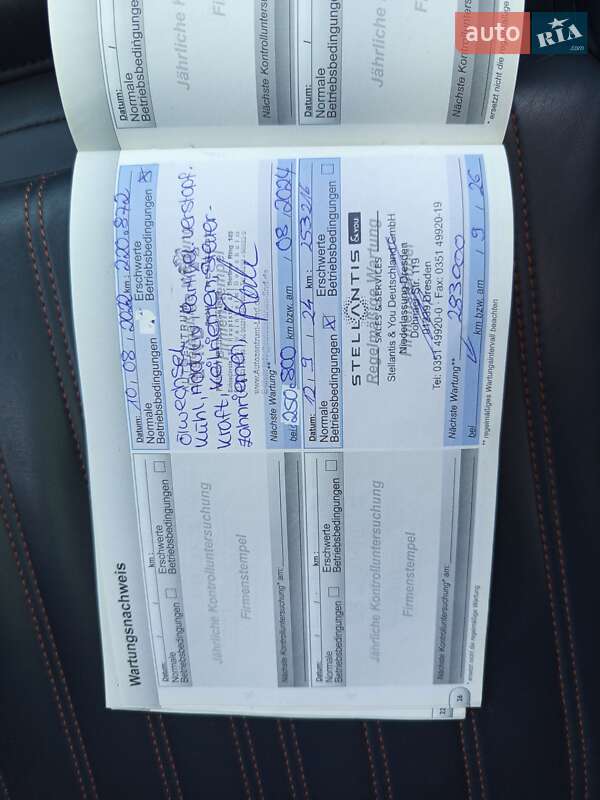 auto RIA.com
Jährliche Kontrolluntersuchung
Firmenstempel
Datum:
Normale
Betriebsbedingungen
Nächste Kontrolluntersuchung
Datum:
Normale
Betriebsbedingungen
Nächste Kontrolluntersuchung
* ersetzt nicht die regelmäßige
Wartungsnachweis
Datum: km:
Normale
Betriebsbedingungen
Erschwerte
Betriebsbedingungen
Jährliche Kontrolluntersuchung
Firmenstempel
Nächste Kontrolluntersuchung* am:
Datum: km:
Normale
Betriebsbedingungen
Erschwerte
Betriebsbedingungen
Jährliche Kontrolluntersuchung
Firmenstempel
Nächste Kontrolluntersuchung* am:
* ersetzt nicht die regelmäßige Wartung
22
26
Datum: 10.08.2022 km: 220.872
Normale
Betriebsbedingungen
Erschwerte
Betriebsbedingungen
Ölwechsel,
Zahnriemen,
Nächste Wartung**
bei 250.800 km bzw. am 08.2024
Datum: 12.9.24 km: 253216
Normale
Betriebsbedingungen
Erschwerte
Betriebsbedingungen
Regelmäßige Wartung
STELLANTIS &YOU
SALES & SERVICES
Stellantis & You Deutschland GmbH
Niederlassung Dresden
Dohnaer Str. 119
Dresden
Tel: 0351 49920-0 · Fax: 0351 49920-19
Nächste Wartung**
bei 283000 km bzw. am 9.26
** regelmäßiges Wartungsintervall beachten